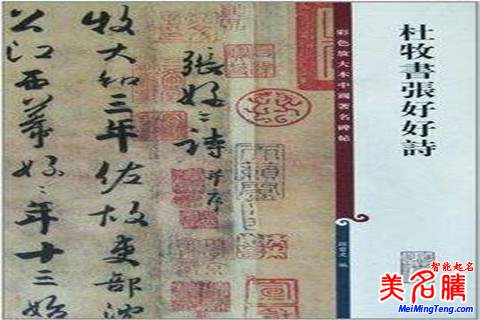 杜牧書張好好詩
彩色放大本中國著名碑帖
張好〻詩并序
牧大和三年佐故吏部沈
公江西幕好〻年十三始
智能起名
美名騰
MeiMingTeng.com